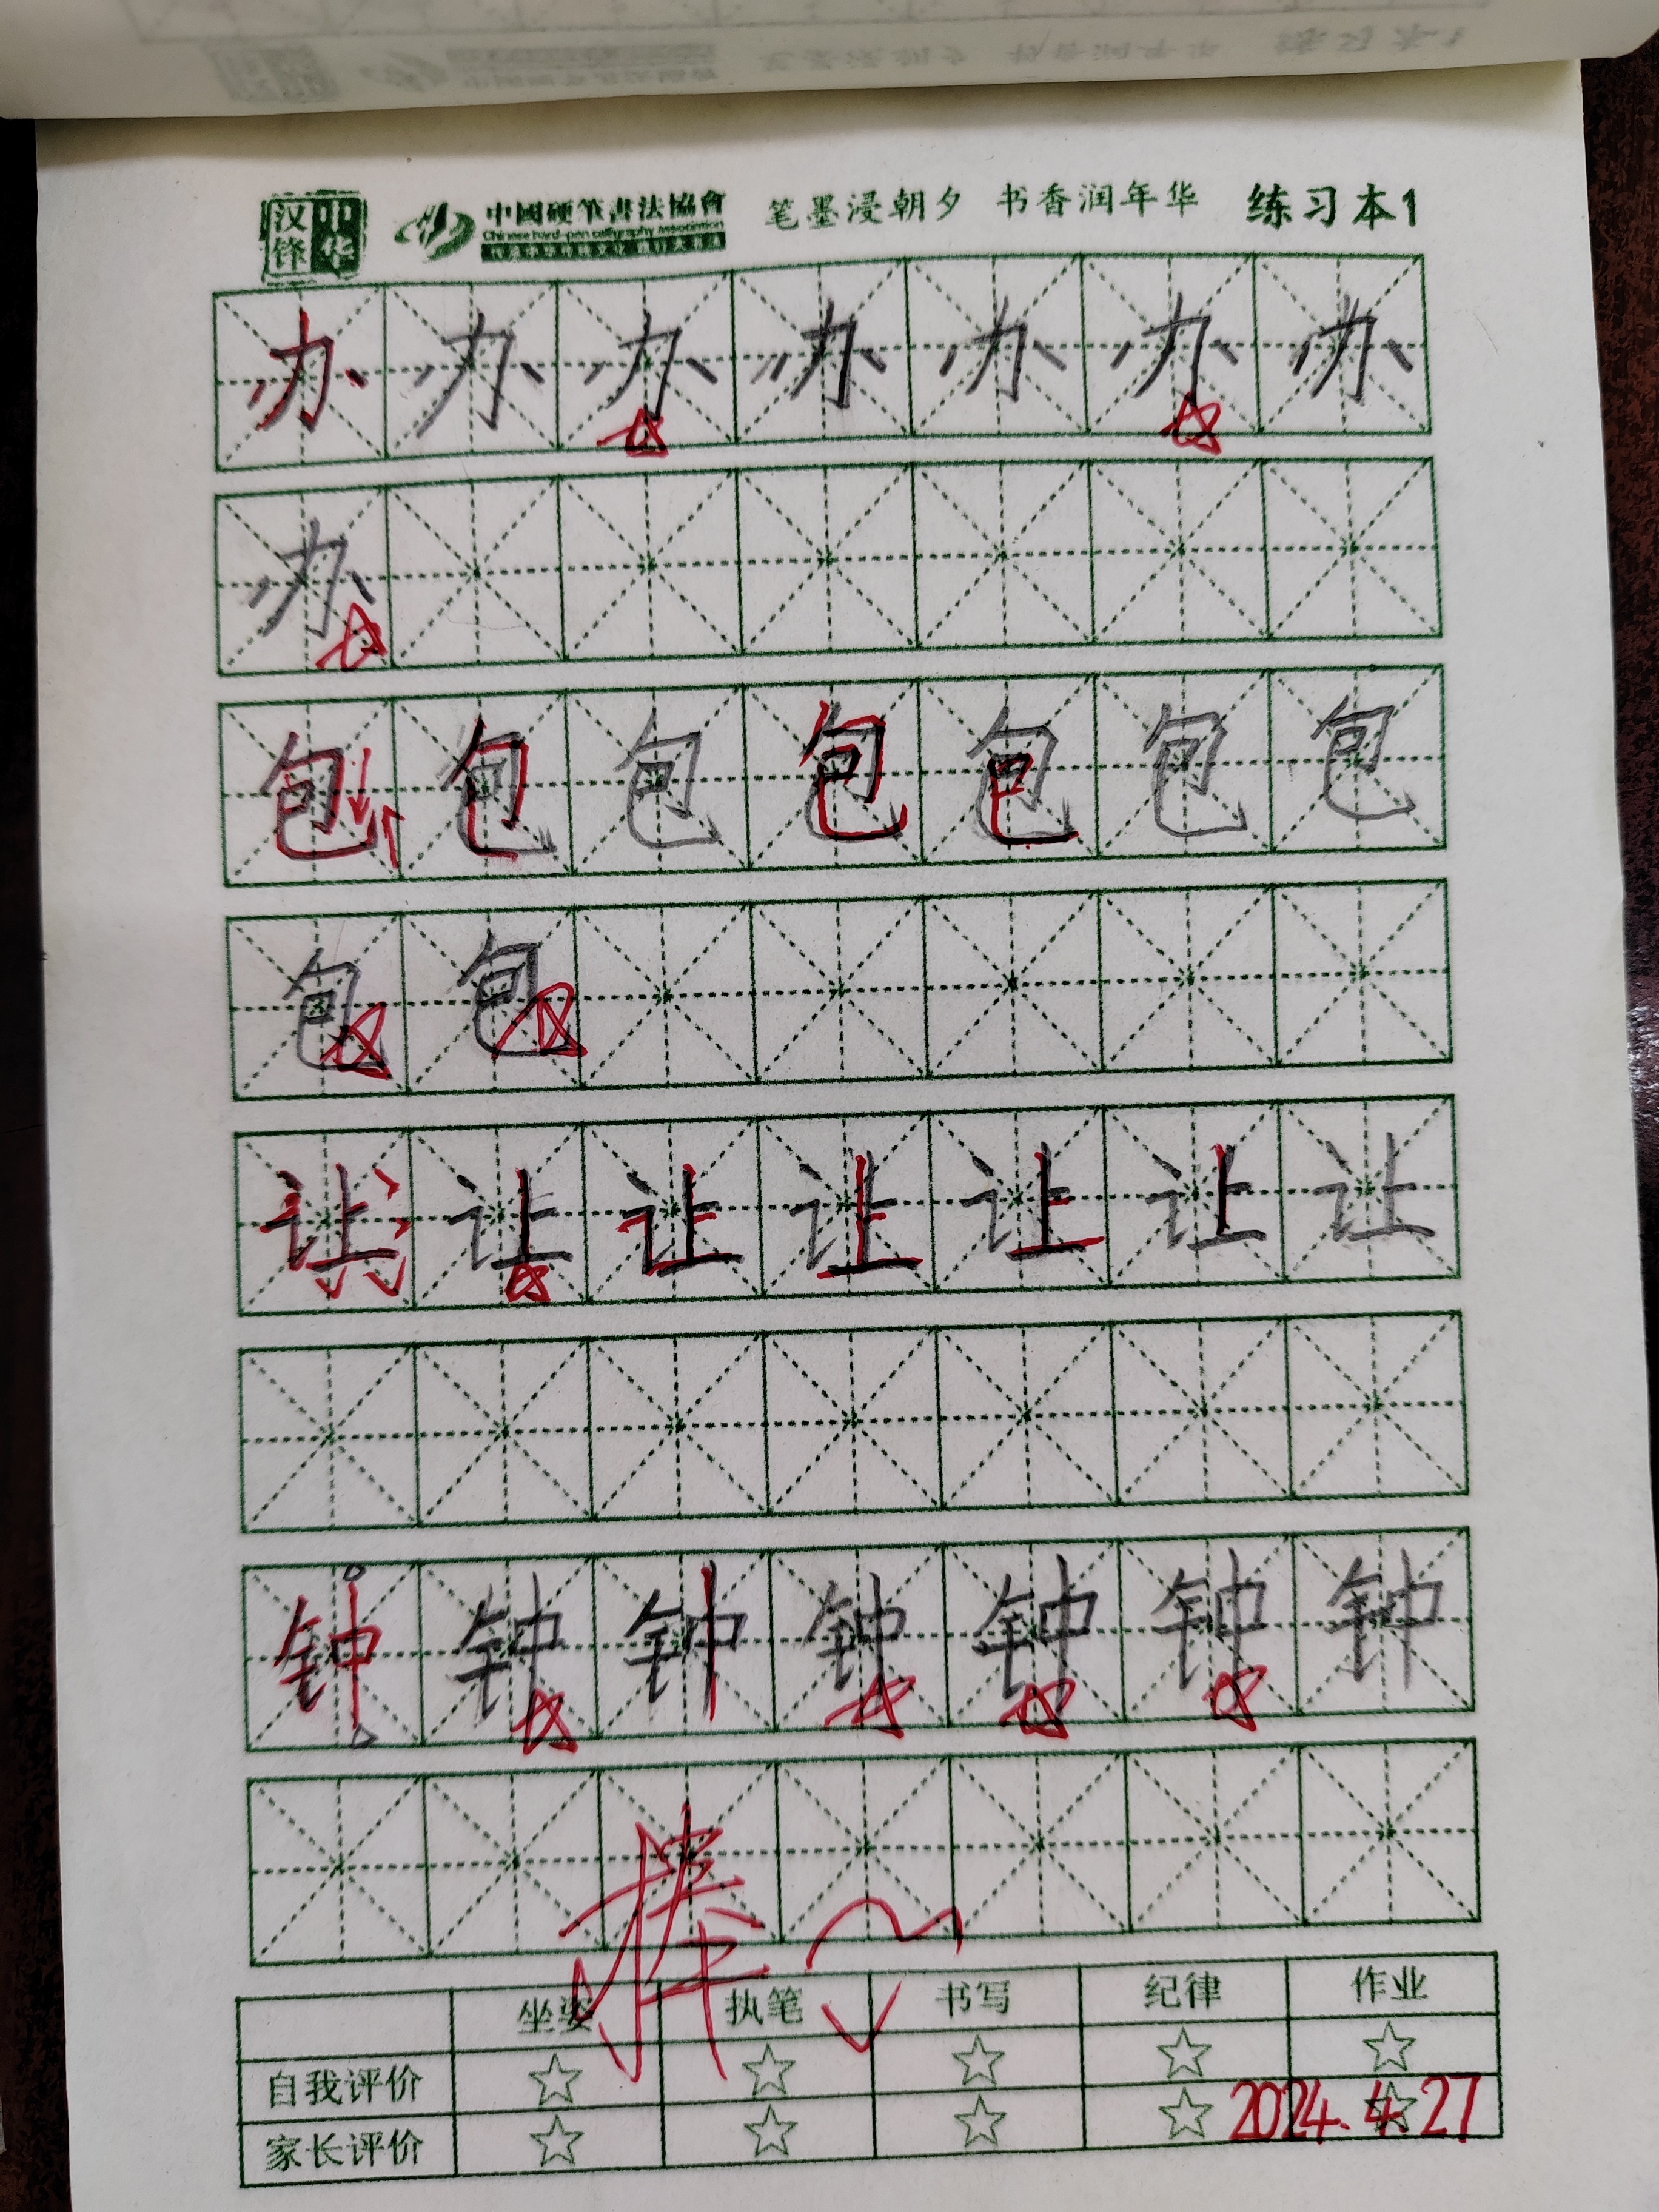 汉锋 中华 中國硬筆書法協會 笔墨浸朝夕 书香润年华 练习本1
Chinese hard-pen calligraphy Association
办 办 办 办 办 办 办
办
包 包 包 包 包 包 包
包 包
让 让 让 让 让 让 让
钟 钟 钟 钟 钟 钟 钟
棒
坐姿 执笔 书写 纪律 作业
自我评价 ☆ ☆ ☆ ☆ ☆
家长评价 ☆ ☆ ☆ ☆ ☆
2024.4.27